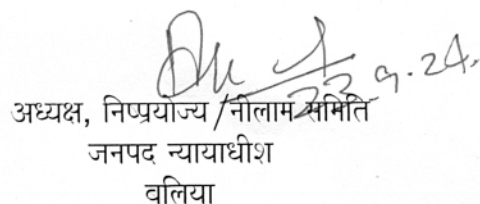 23.9.24.
अध्यक्ष, निष्प्रयोज्य/नीलाम समिति
जनपद न्यायाधीश
वलिया